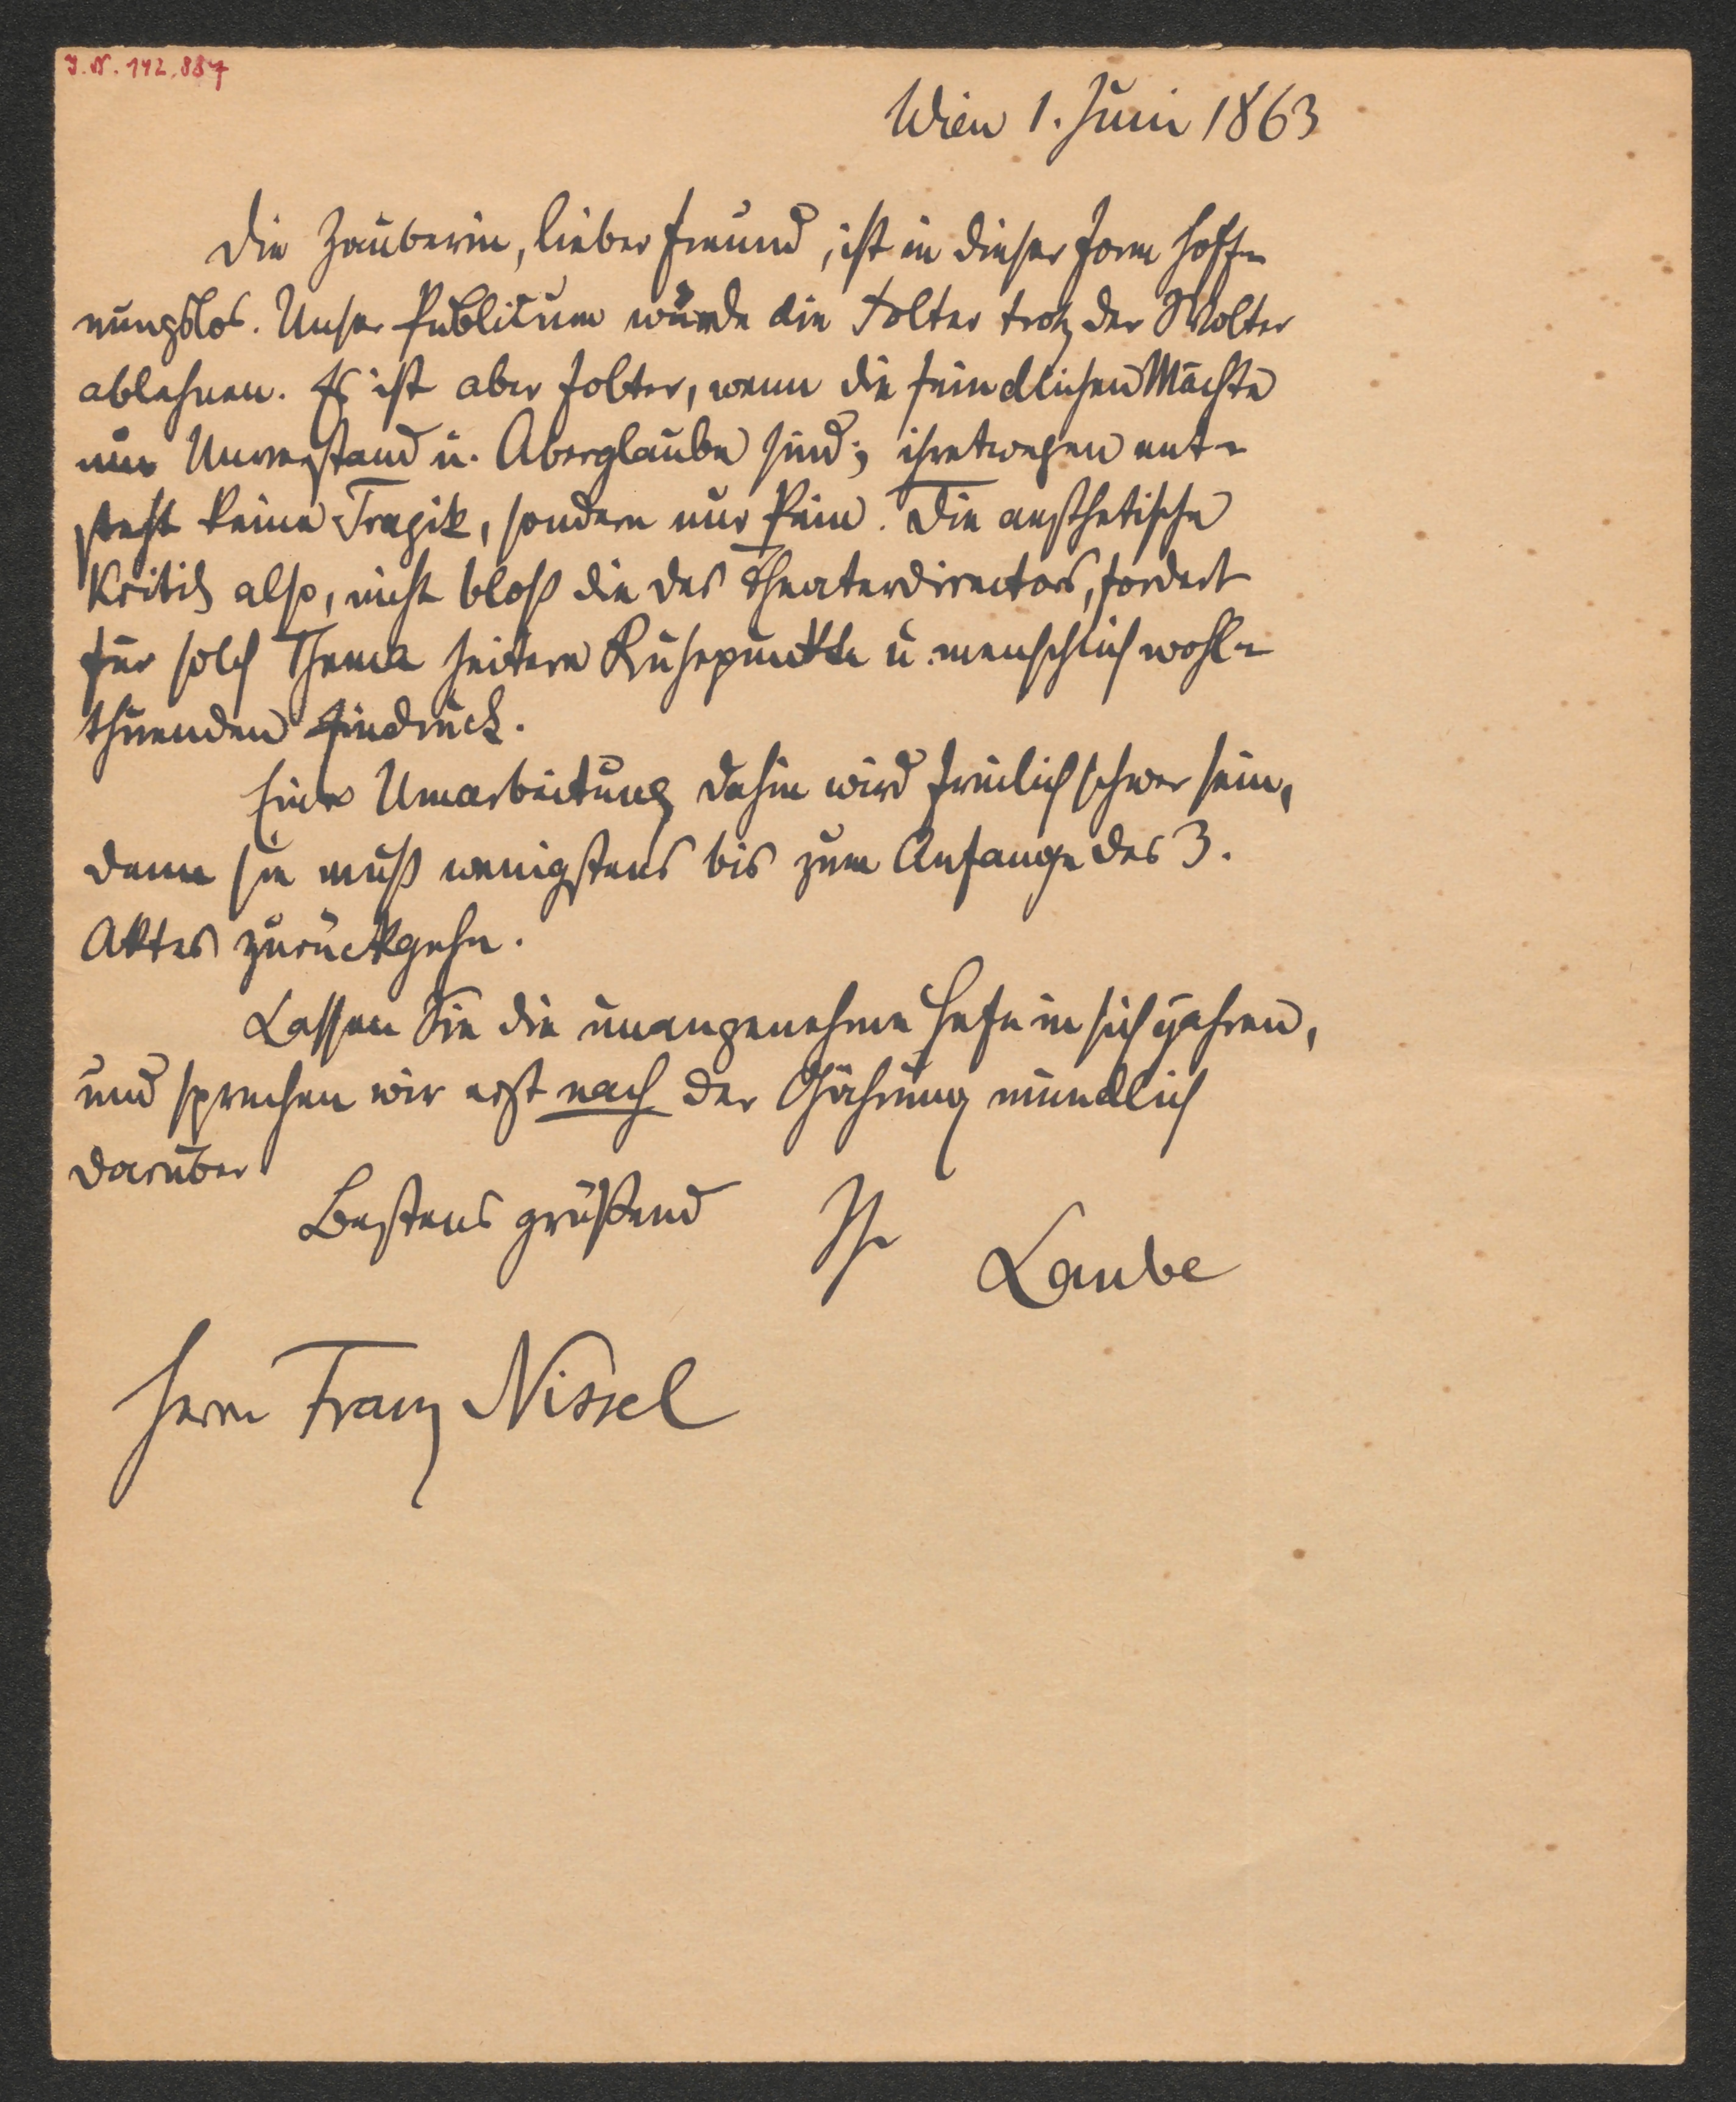 I.N. 142.887
Wien 1. Juni 1863
Die Zauberin, lieber Freund, ist in dieser Form hoff-
nungslos. Unser Publicum würde die Folter trotz der Wolter
ablehnen. Es ist aber Folter, wenn die feindlichen Mächte
nur Unverstand u. Aberglaube sind; ihretwegen ent-
steht keine Tragik, sondern nur Pein. Die aesthetische
Kritik also, nicht bloß die des Theaterdirectors, fordert
für solch Thema heitere Ruhepunkte u. menschlich wohl-
thuenden Eindruck.
Eine Umarbeitung dahin wird freilich schwer sein,
denn sie muß wenigstens bis zum Anfange des 3.
Aktes zurückgehn.
Lassen Sie die unangenehme Hefe in sich gähren,
und sprechen wir erst nach der Gährung mündlich
darüber
Bestens grüßend Ihr
Laube
Herrn Franz Nissel